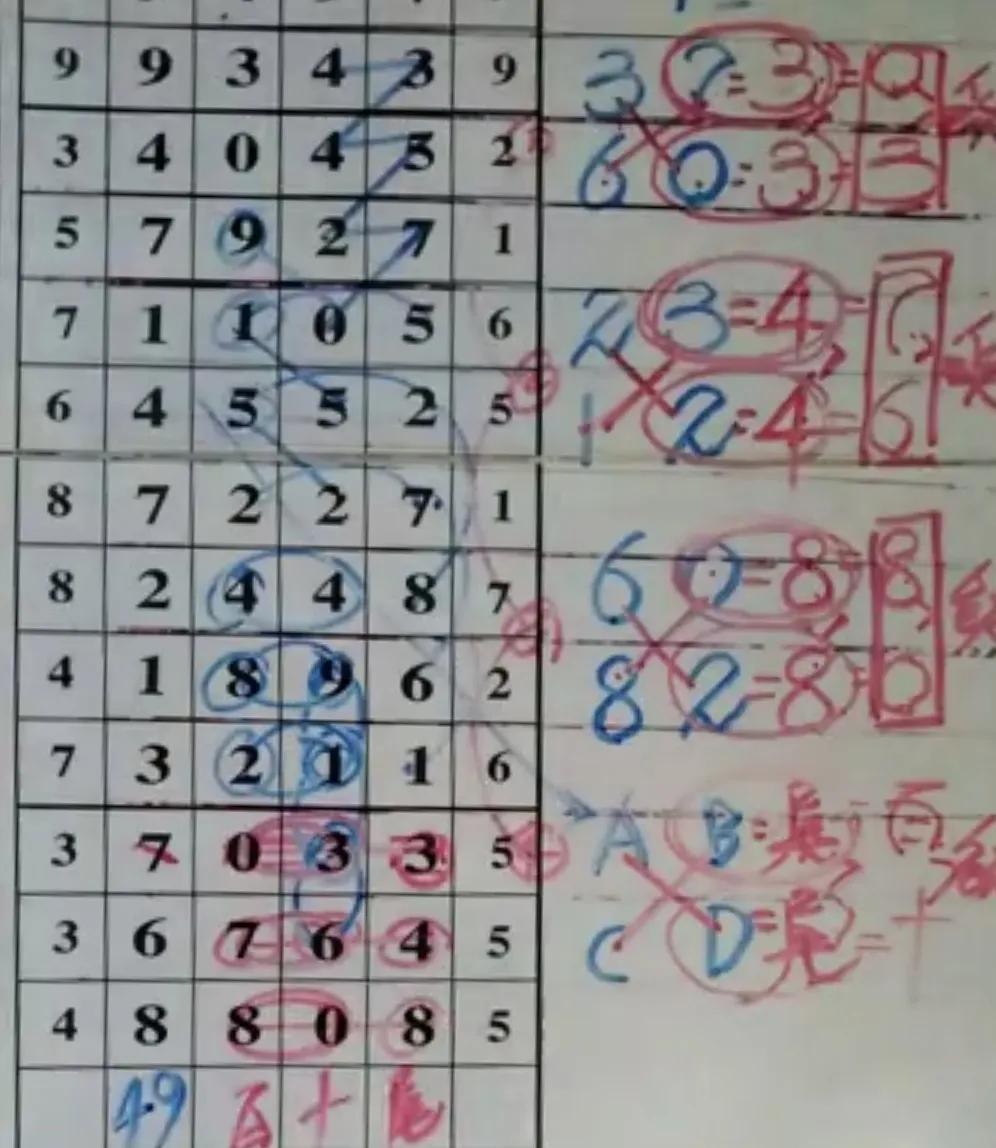 9 9 3 4 3 9
3 7=3=
3 4 0 4 5 2
6 0=3=3
5 7 9 2 7 1
7 1 1 0 5 6
2 3=4=
6 4 5 5 2 5
1 2=4=6
8 7 2 2 7 1
8 2 4 4 8 7
6 =8=8
4 1 8 9 6 2
8 2=8=0
7 3 2 1 1 6
3 7 0 3 3 5
A B= =百
3 6 7 6 4 5
C D=尾=十
4 8 8 0 8 5
49 百 十 尾